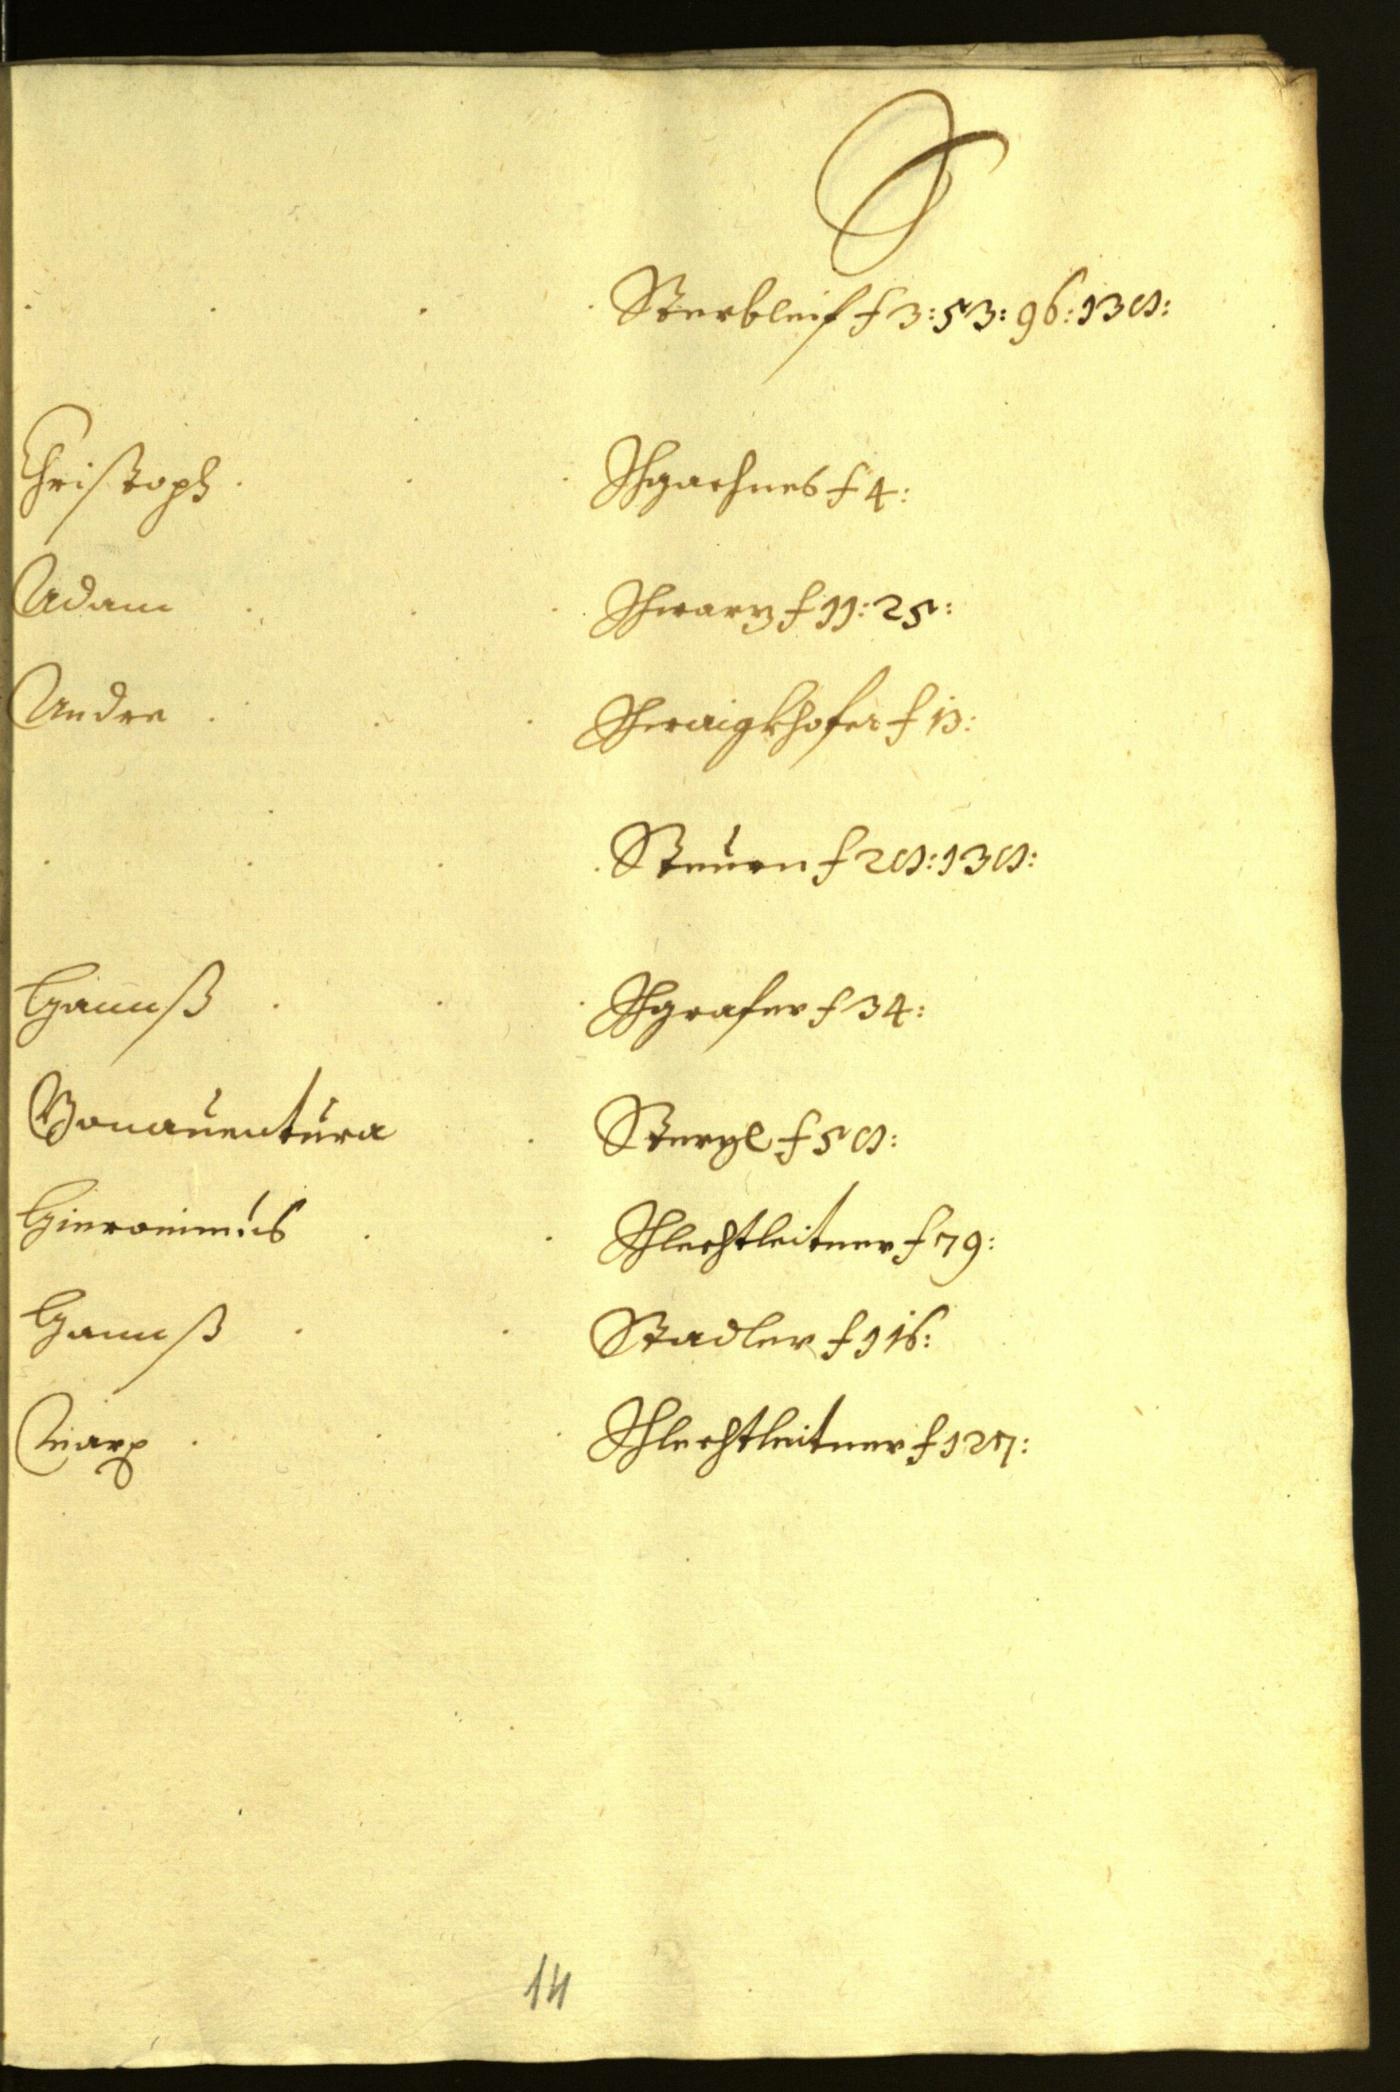 S
Sterbleif f 3: 53: 96: 138:
Christoph Schgachnes f 4:
Adam Schwarz f 11: 25:
Andre Schwaigkhofer f 13:
Steurn f 28: 138:
Hannß Schgrafer f 34:
Bonauentura Sterzl f 58:
Hieronimus Schlechtleitner f 79:
Hannß Stadler f 116:
Marx Schlechtleitner f 127:
14